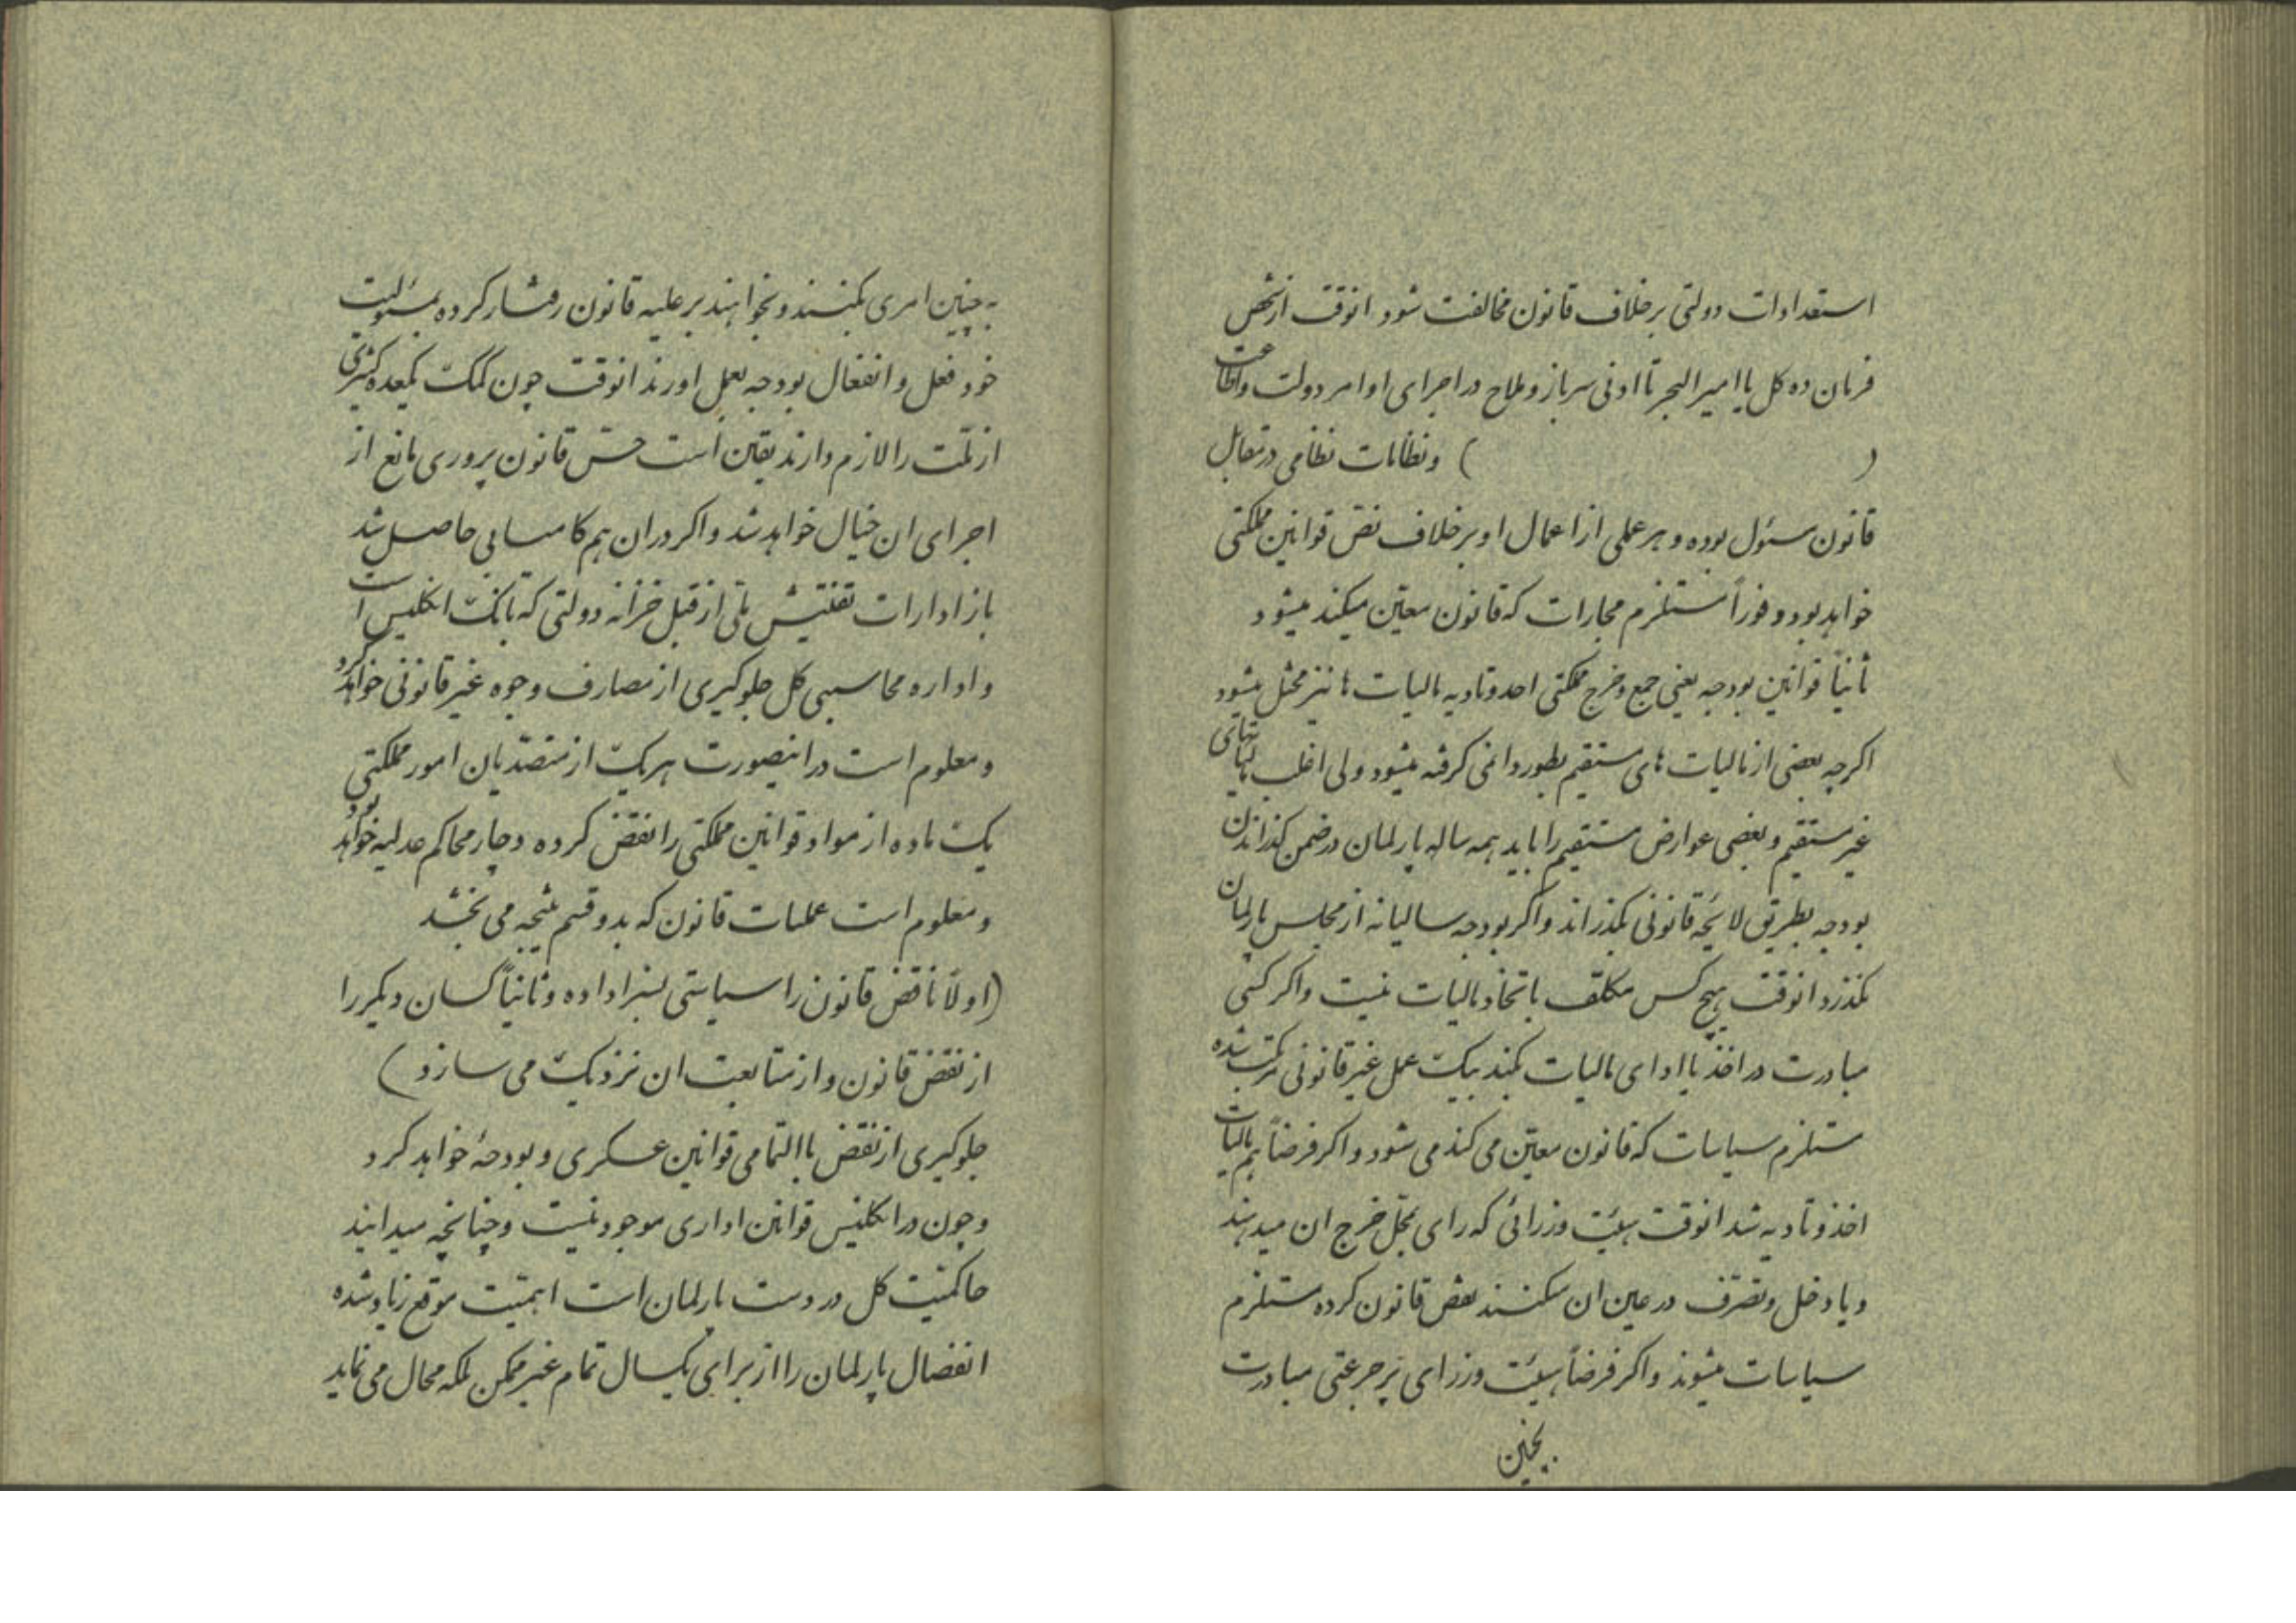 استعدادات دولتی برخلاف قانون مخالفت شود انوقت از شخص
فرمان ده کل یا امیرالبحر تا ادنی سرباز و ملاح در اجرای اوامر دولت واطاعت
( ) ونظامات نظامی درمقابل
قانون مسئول بوده و هر عملی از اعمال او برخلاف نقض قوانین مملکتی
خواهد بود و فوراً مستلزم مجازات که قانون معین میکند میشود
ثانیاً قوانین بودجه یعنی جمع وخرج مملکتی اخذ وتادیه مالیات ها نیز مختل میشود
اکرچه بعضی از مالیات های مستقیم بطور دائمی کرفته میشود ولی اغلب مالیاتهای
غیر مستقیم و بعضی عوارض مستقیم را باید همه ساله پارلمان درضمن کذراندن
بودجه بطریق لایحه قانونی بکذراند واکر بودجه سالیانه از مجلس پارلمان
نکذرد انوقت هیچ کس مکلف باتخاد مالیات نیست واکر کسی
مبادرت در اخذ یا ادای مالیات بکند بیک عمل غیر قانونی مرتکب شده
مستلزم سیاسات که قانون معین می کند می شود واکر فرضاً هم مالیات
اخذ وتادیه شد انوقت هیئت وزرائی که رای بمحل خرج ان میدهند
ویا دخل وتصرف در عین ان میکنند نقض قانون کرده مستلزم
سیاسات میشوند واکر فرضاً هیئت وزرای پر جرعتی مبادرت
بچنین
به چنین امری بکنند و بخواهند بر علیه قانون رفتار کرده بمسئولیت
خود فعل و انفعال بودجه بعمل اورند انوقت چون کمک یکعده کثیری
از ملت را لازم دارند یقین است حس قانون پروری مانع از
اجرای ان خیال خواهد شد واکر در ان هم کامیابی حاصل شد
باز ادارات تفتیش مالی از قبل خزانه دولتی که بانک انکلیس است
و اداره محاسبی کل جلوکیری از مصارف وجوه غیر قانونی خواهد کرد
و معلوم است در اینصورت هریک از متصدیان امور مملکتی
یک ماده از مواد قوانین مملکتی را نقض کرده دچار محاکم عدلیه خواهد بود
و معلوم است عملیات قانون که بدو قسم نتیجه می بخشد
(اولاً ناقض قانون را سیاستی بسزا داده و ثانیاً کسان دیکر را
از نقض قانون و از متابعت ان نزدیک می سازد)
جلوکیری از نقض باالتمامی قوانین عسکری و بودجهٔ خواهد کرد
و چون در انکلیس قوانین اداری موجود نیست و چنانچه میدانید
حاکمیت کل در دست پارلمان است اهمیت موقع زیاد شده
انفصال پارلمان را از برای یکسال تمام غیر ممکن بلکه محال می نماید